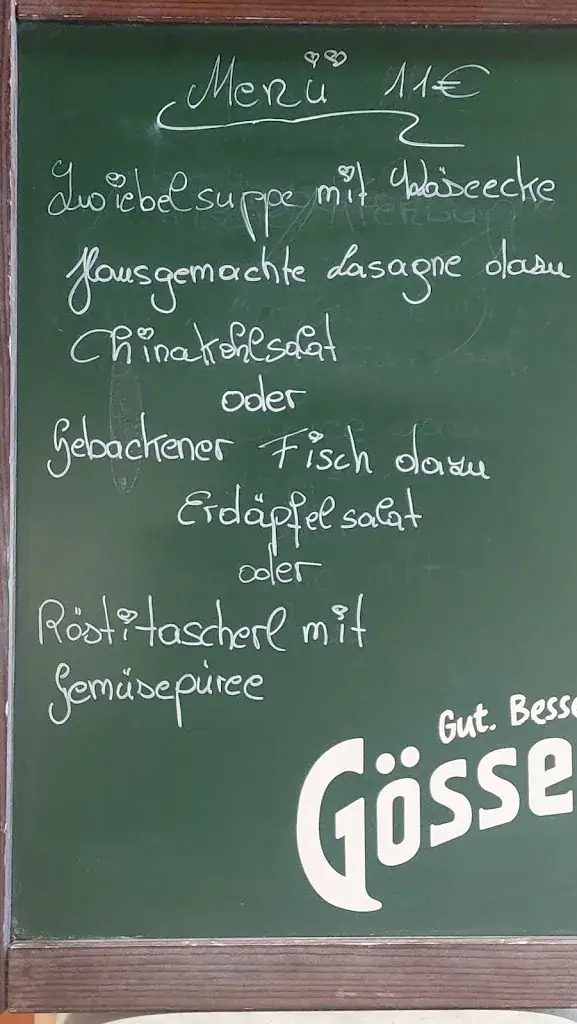 Menü 11€
Zwiebelsuppe mit Käseecke
Hausgemachte Lasagne dazu
Chinakohlsalat
oder
Gebackener Fisch dazu
Erdäpfelsalat
oder
Röstitascherl mit
Gemüsepüree
Gut. Besse
Gösse